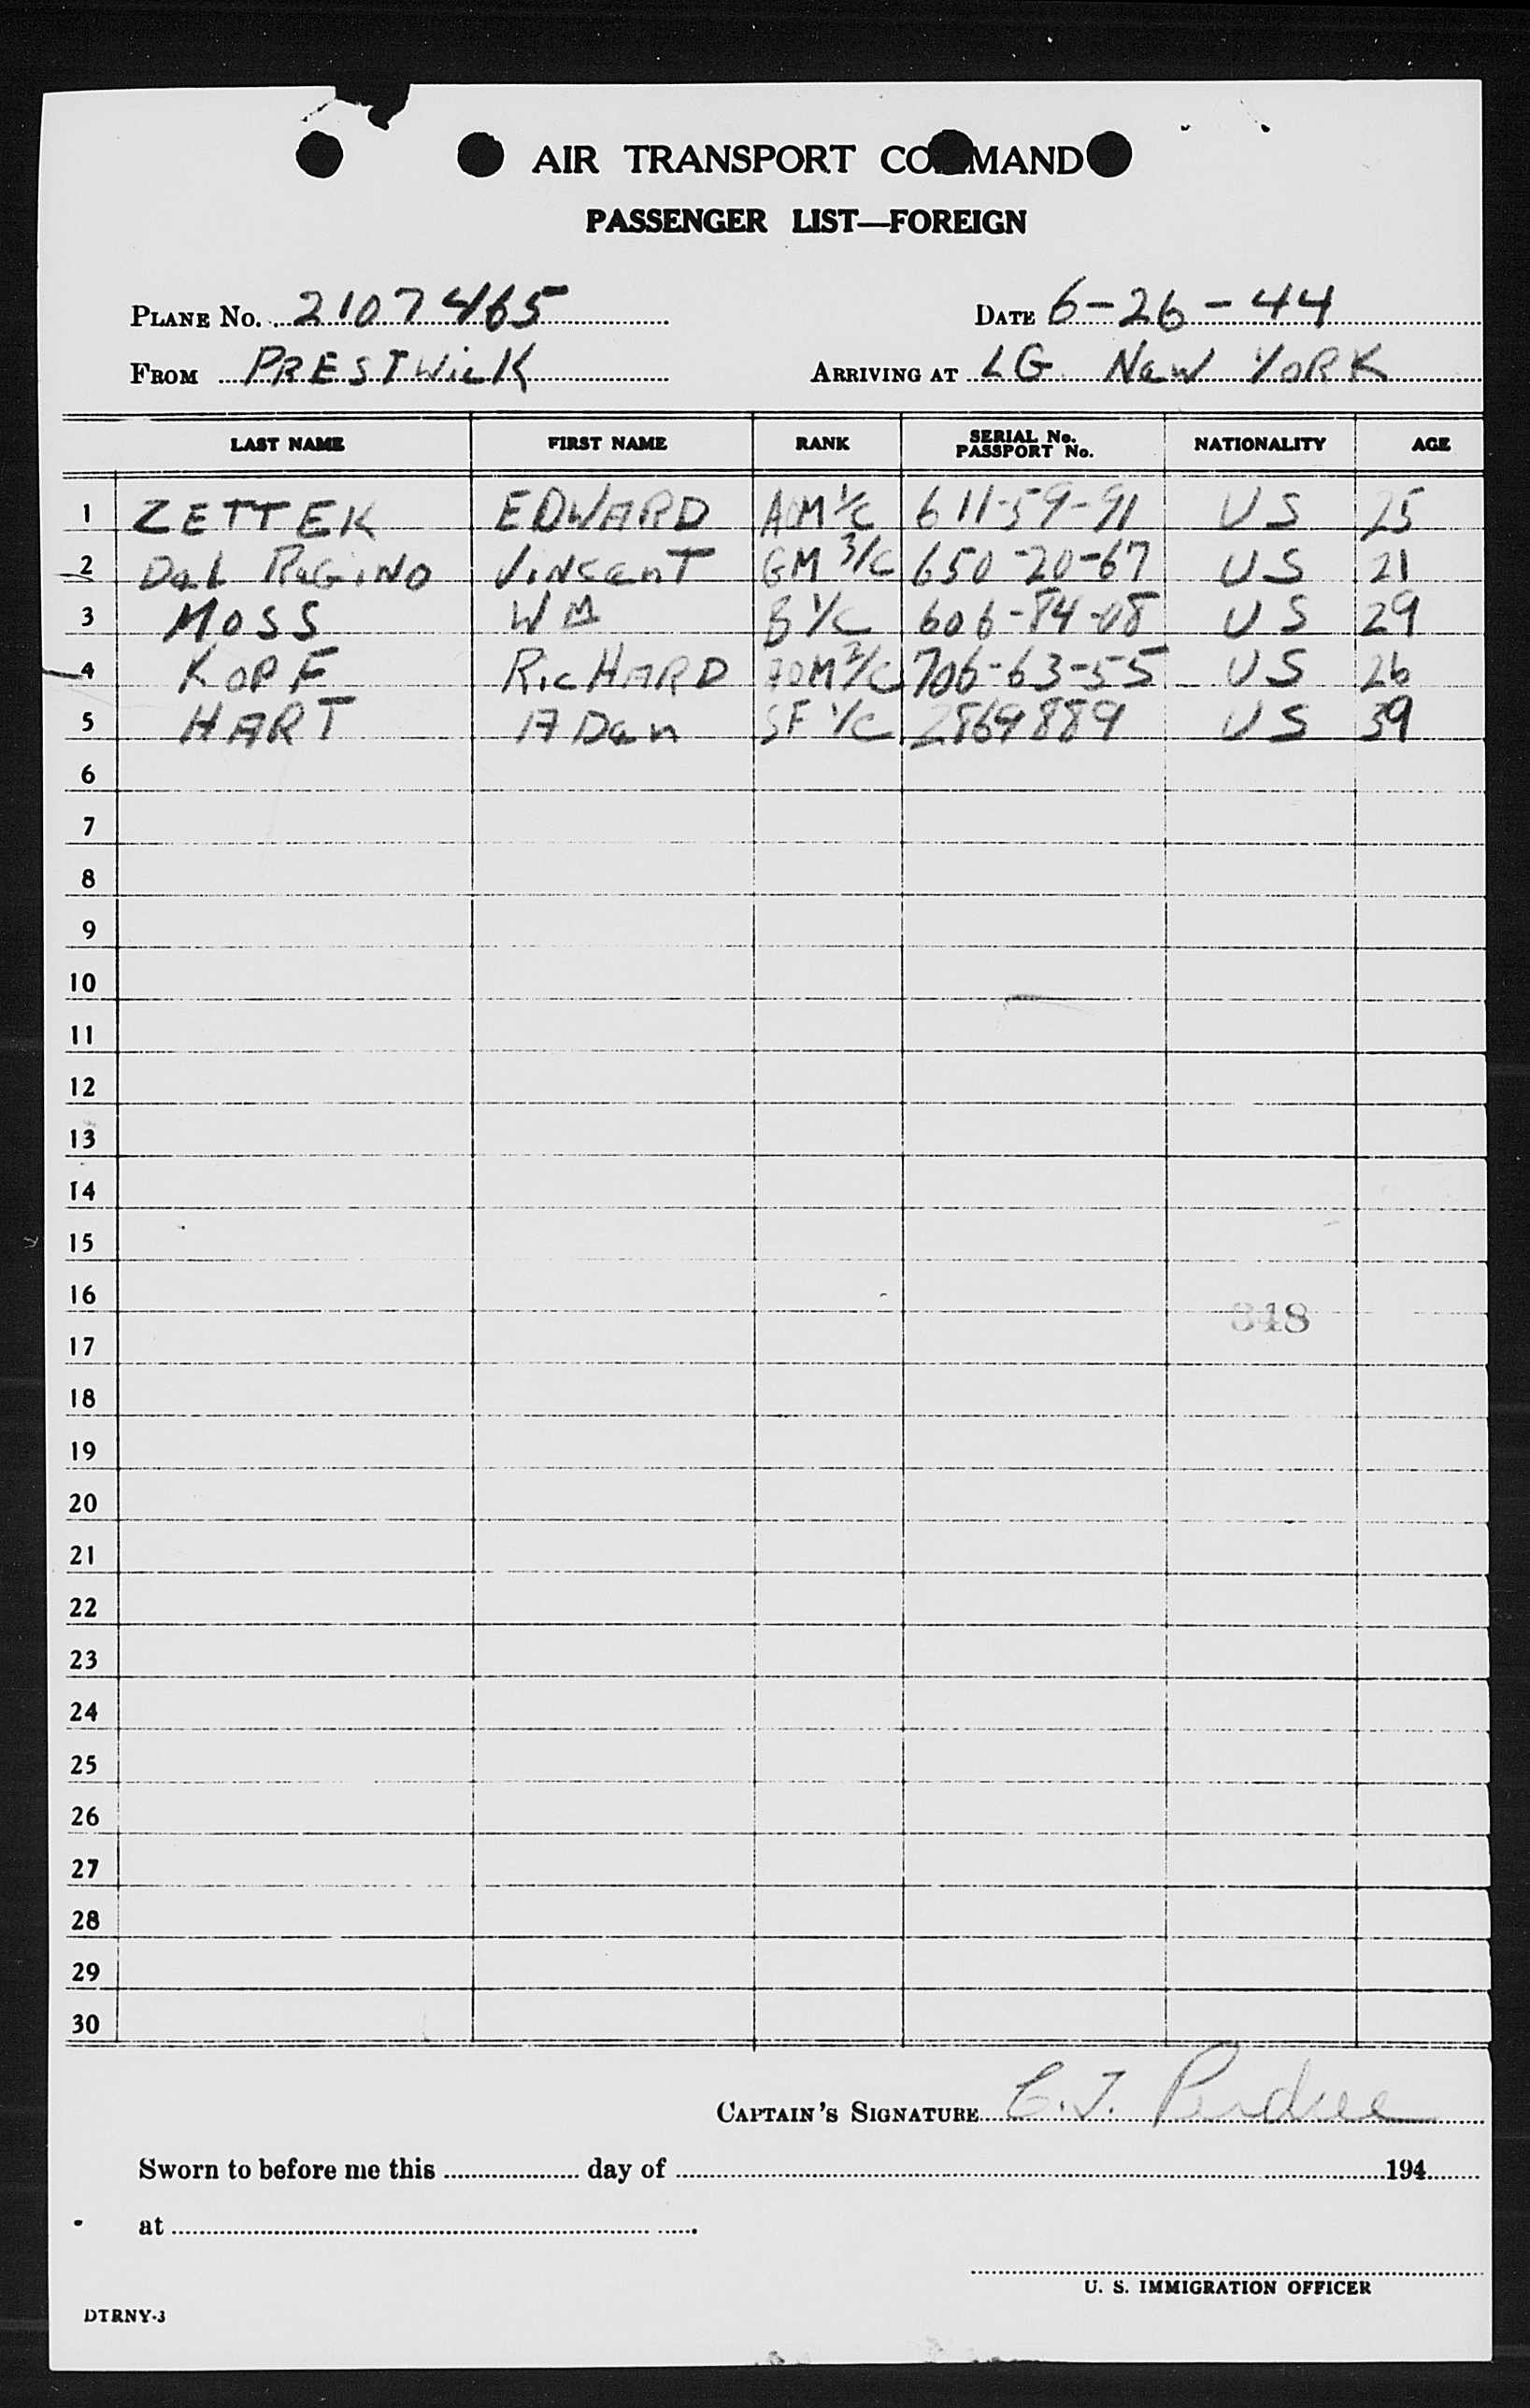 AIR TRANSPORT COMMAND
PASSENGER LIST—FOREIGN
PLANE No. 2107465 DATE 6-26-44
FROM PRESTWICK ARRIVING AT LG New YORK
LAST NAME FIRST NAME RANK SERIAL No. PASSPORT No. NATIONALITY AGE
1 ZETTEK EDWARD AOM 1/C 611-59-91 US 25
2 DeL ReGiNO ViNcenT GM 3/C 650-20-67 US 21
3 MOSS WM B 1/C 606-84-08 US 29
4 KOPF RicHARD AOM 2/C 706-63-55 US 26
5 HART ADen SF 1/C 2869889 US 39
6
7
8
9
10
11
12
13
14
15
16
348
17
18
19
20
21
22
23
24
25
26
27
28
29
30
CAPTAIN'S SIGNATURE C.J. Perdue
Sworn to before me this day of 194
at
U. S. IMMIGRATION OFFICER
DTRNY-3